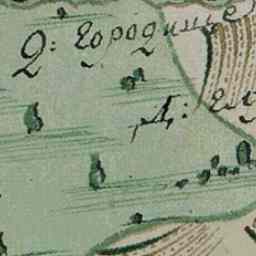 Д: Городище
Д: Ел